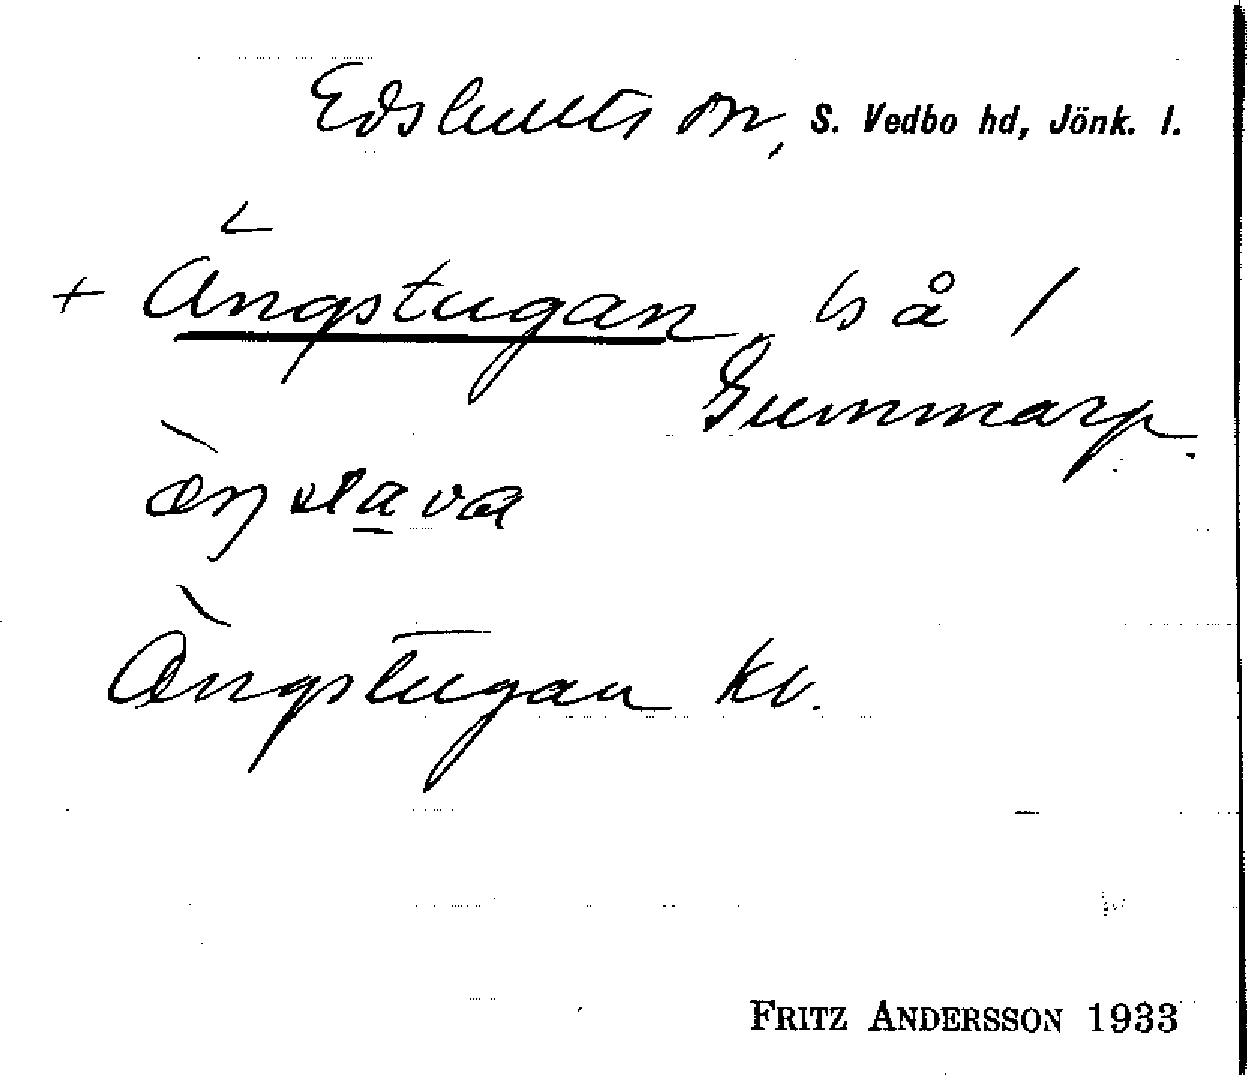 Edshults sn, S. Vedbo hd, Jönk. l.
+ Ängstugan, bs å 1
Gummarp.
Ängstugan kv.
FRITZ ANDERSSON 1933